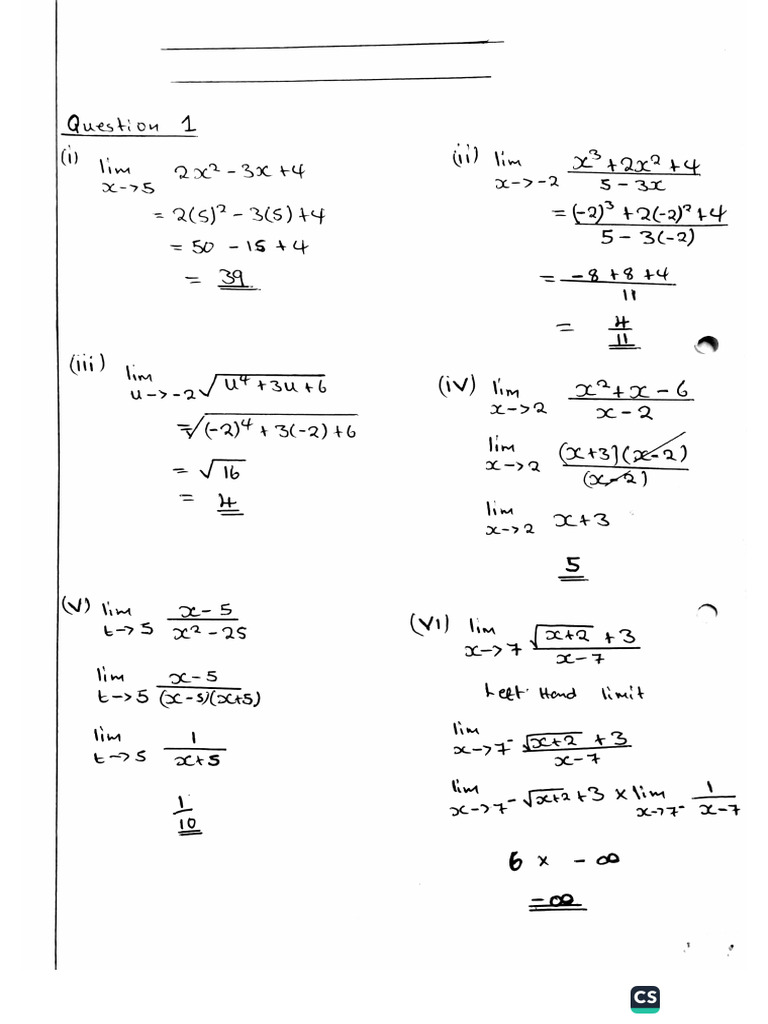 Question 1
(i) lim x->5 2x² - 3x + 4
= 2(5)² - 3(5) + 4
= 50 - 15 + 4
= 39
(ii) lim x->-2 (x³ + 2x² + 4)/(5 - 3x)
= ((-2)³ + 2(-2)² + 4)/(5 - 3(-2))
= (-8 + 8 + 4)/11
= 4/11
(iii) lim u->-2 √(u⁴ + 3u + 6)
= √((-2)⁴ + 3(-2) + 6)
= √16
= 4
(iv) lim x->2 (x² + x - 6)/(x - 2)
lim x->2 ((x+3)(x-2))/(x-2)
lim x->2 x+3
5
(v) lim t->5 (x - 5)/(x² - 25)
lim t->5 (x-5)/((x-5)(x+5))
lim t->5 1/(x+5)
1/10
(vi) lim x->7 (√(x+2) + 3)/(x-7)
Left Hand limit
lim x->7⁻ (√(x+2) + 3)/(x-7)
lim x->7⁻ √(x+2) + 3 × lim x->7⁻ 1/(x-7)
6 × -∞
-∞
CS